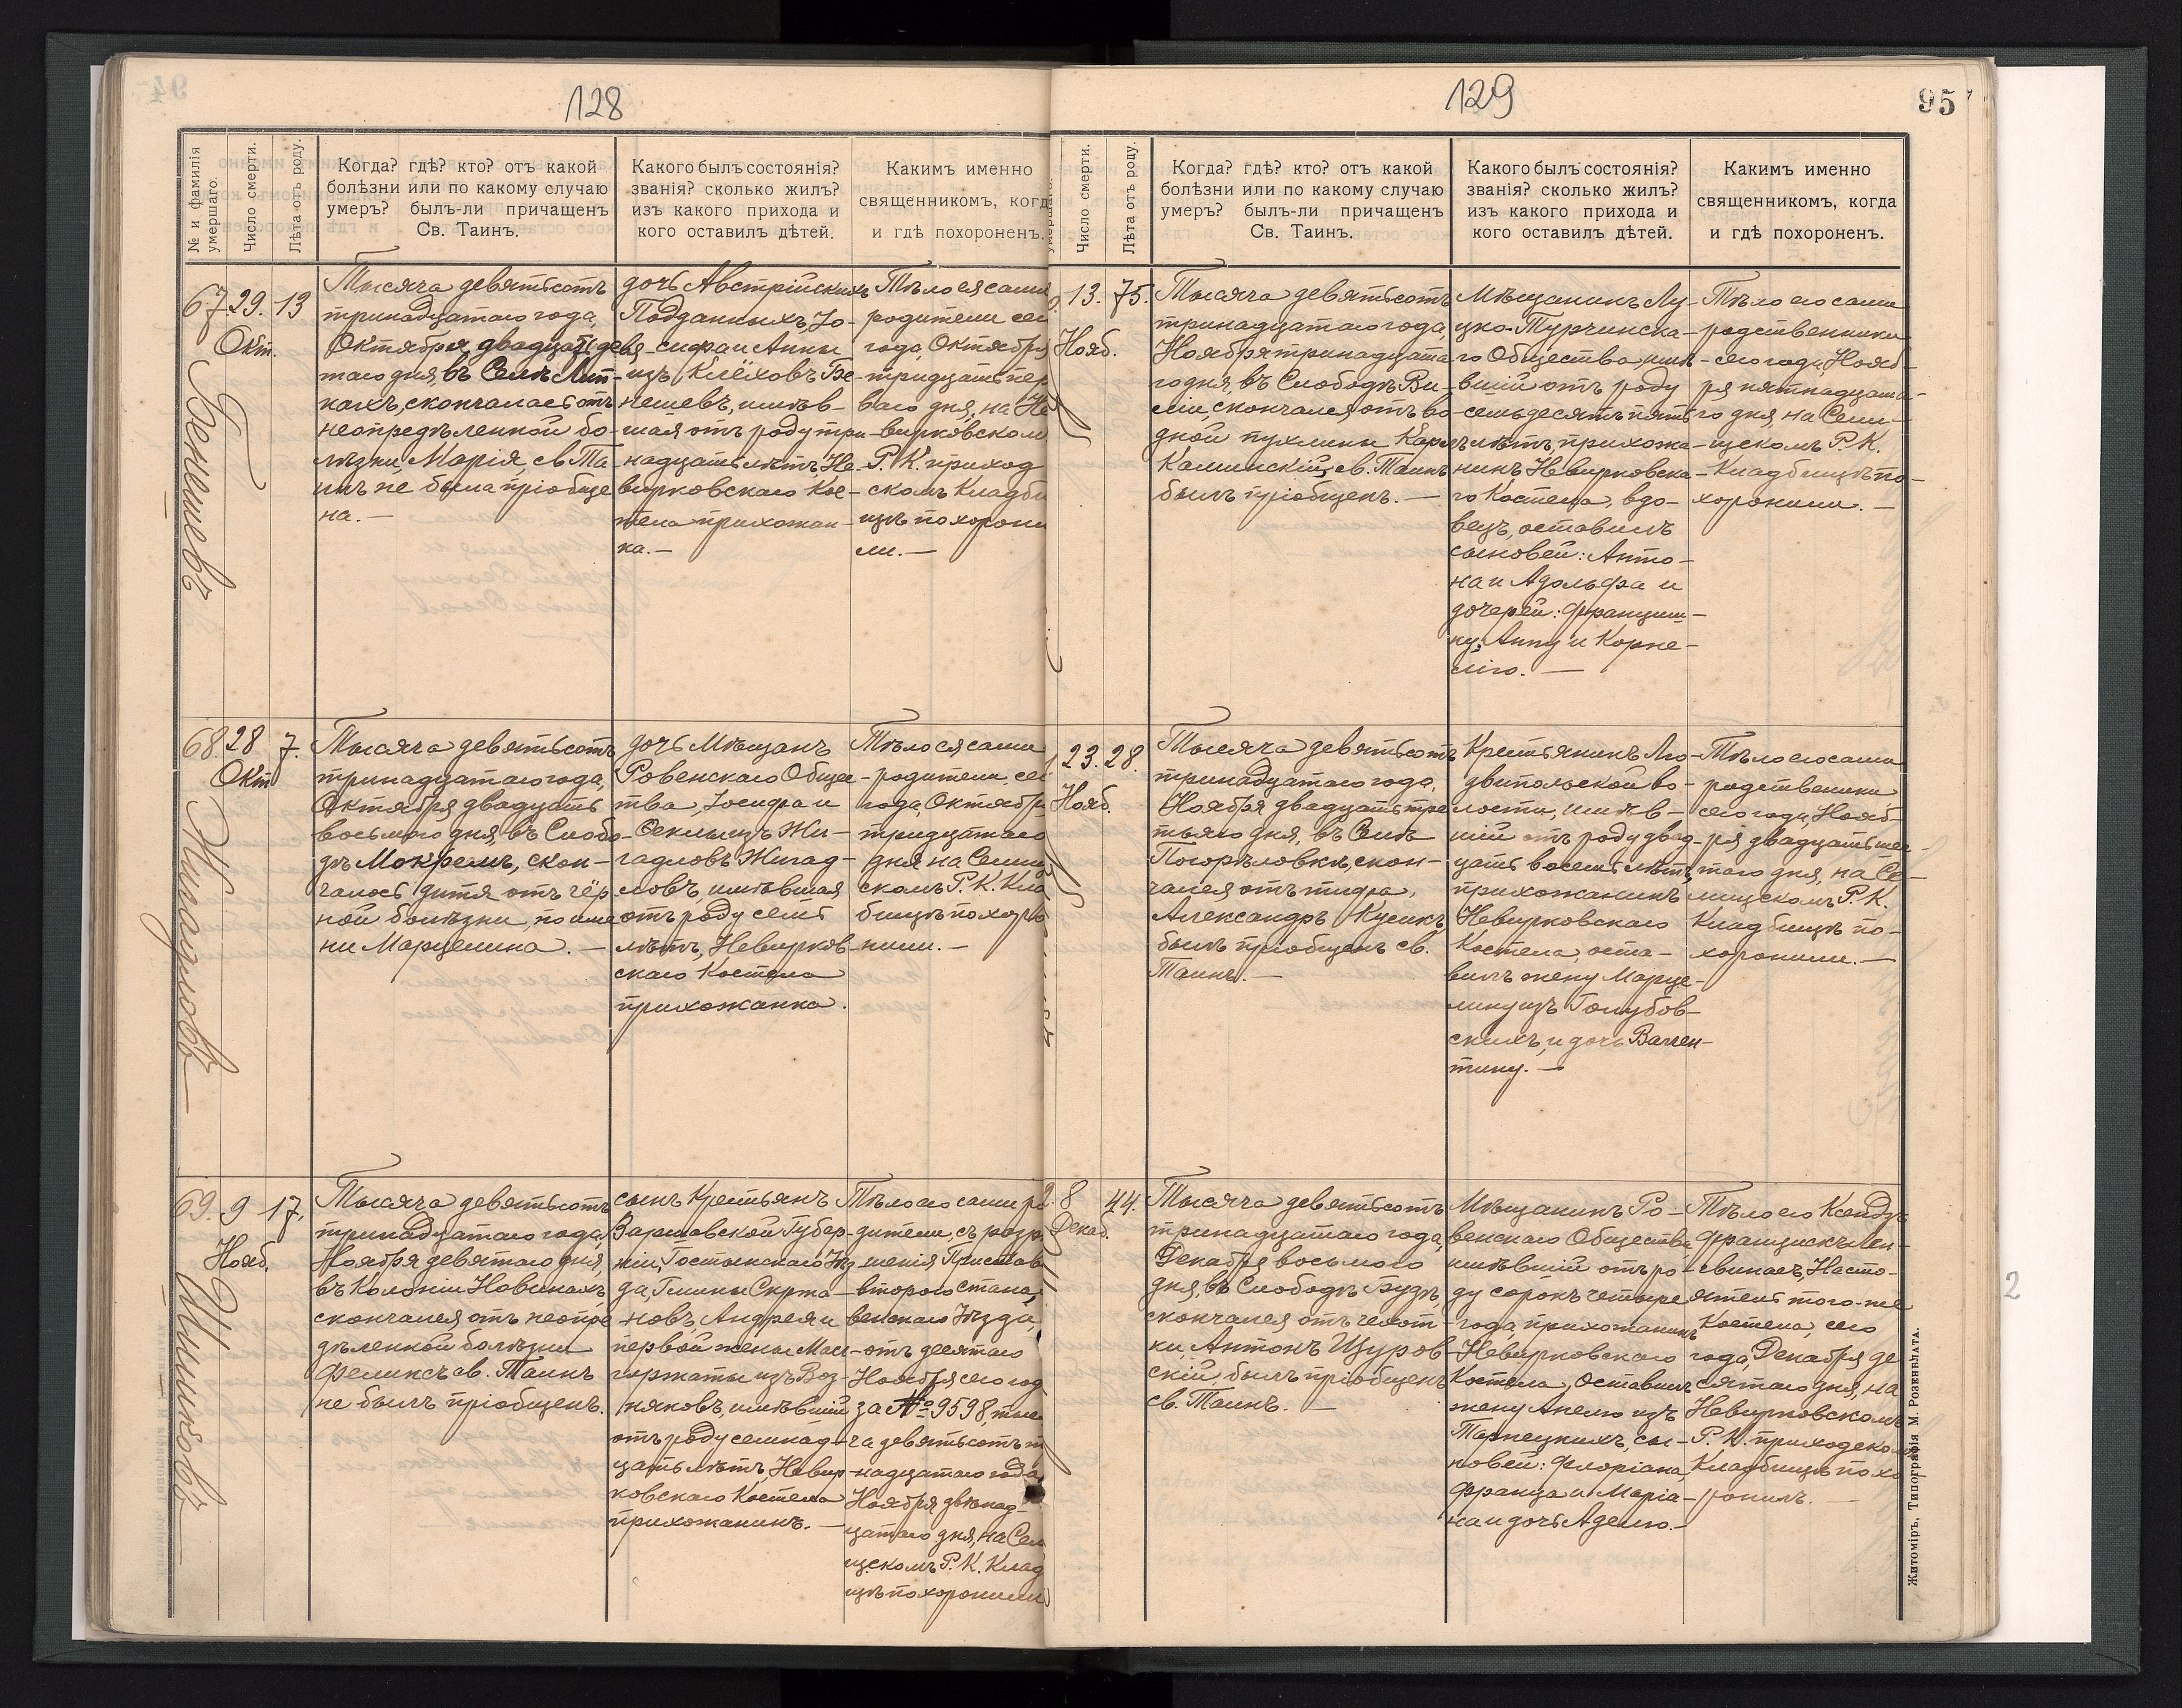 128
№ и фамилія умершаго.
Число смерти.
Лѣта отъ роду.
Когда? гдѣ? кто? отъ какой
болѣзни или по какому случаю
умеръ? былъ-ли причащенъ
Св. Таинъ.
Какого былъ состоянія?
званія? сколько жилъ?
изъ какого прихода и
кого оставилъ дѣтей.
Какимъ именно
священникомъ, когд
и гдѣ похороненъ.
67
29.
Окт.
13
Бенешевъ
Тысяча девятьсотъ
тринадцатаго года,
Октября двадцать девя-
таго дня, въ Селѣ Лип-
кахъ, скончалась отъ
неопредѣленной бо-
лѣзни, Марія, св. Та-
инъ не была пріобще
на. —
дочь Австрійскихъ
Подданныхъ, Іо-
сифа и Анны
изъ Клёховъ Бе-
нешевъ, имѣв-
шая отъ роду три-
надцать лѣтъ, Не-
вирковскаго Кос-
тела прихожан-
ка. —
Тѣло ея сами
родители сег
года, Октября
тридцать пер
ваго дня, на Не
вирковском
Р. К. приход
скомъ Кладби
щѣ похорони
ли. —
68.
28
Окт
7.
Жигадловъ
Тысяча девятьсотъ
тринадцатаго года,
Октября двадцать
восьмого дня, въ Слобо-
дѣ Мокремъ, скон-
чалось дитя отъ чёр
ной болѣзни, по име
ни Марцелина. —
дочь Мѣщанъ
Ровенскаго Общес-
тва, Іосифа и
Феклы изъ Жи-
гадловъ Жигад-
ловъ, имѣвшая
отъ роду семь
лѣтъ, Невирков-
скаго Костела
прихожанка.
Тѣло ея сами
родители, сег
года, Октябр
тридцатаго
дня на Селищ
скомъ Р. К. Кла
бищѣ похоро
нили. —
69.
9
Нояб.
17.
Шишковъ
Тысяча девятьсотъ
тринадцатаго года,
Ноября девятаго дня,
въ Колоніи Новинахъ
скончался отъ неопре
дѣленной болѣзни
Феликсъ св. Таинъ
не былъ пріобщенъ.
сынъ Крестьянъ
Варшавской Губер-
ніи, Гостынскаго Уѣз
да, Гмины Скржа-
новъ, Андрея и
первой жены Мал-
горжаты изъ Воз-
няковъ, имѣвшій
отъ роду семнад-
цать лѣтъ, Невир-
ковскаго Костела
прихожанинъ. —
Тѣло его сами ро
дители, съ разр
шенія Пристав
второго стана,
венскаго Уѣзда,
отъ десятаго
Ноября сего год
за № 9598, тыс
ча девятьсотъ т
надцатаго года
Ноября двѣнад-
цатаго дня, на Сел
щскомъ Р. К. Клад
щѣ похоронили
129
95
умершаго.
Число смерти.
Лѣта отъ роду.
Когда? гдѣ? кто? отъ какой
болѣзни или по какому случаю
умеръ? былъ-ли причащенъ
Св. Таинъ.
Какого былъ состоянія?
званія? сколько жилъ?
изъ какого прихода и
кого оставилъ дѣтей.
Какимъ именно
священникомъ, когда
и гдѣ похороненъ.
13.
Нояб.
75.
Тысяча девятьсотъ
тринадцатаго года,
Ноября тринадцата
го дня, въ Слободѣ Ви-
сліи, скончался, отъ во-
дной пухлины Карлъ
Калинскій, св. Таинъ
былъ пріобщенъ. —
Мѣщанинъ Лу-
цко-Турчинска-
го Общества, имѣ-
вшій отъ роду
семьдесятъ пять
лѣтъ, прихожа-
нинъ Невирковска-
го Костела, вдо-
вецъ, оставилъ
сыновей: Анто-
на и Адольфа и
дочерей: Францишк-
ку, Анну и Корне-
лію. —
Тѣло его сами
родственники
сего года, Нояб-
ря пятнадцата-
го дня, на Сели-
щскомъ Р. К.
Кладбищѣ по-
хоронили. —
23.
Нояб.
28.
Тысяча девятьсотъ
тринадцатаго года,
Ноября двадцать тре
тьяго дня, въ Селѣ
Погорѣловкѣ, скон-
чался отъ тифа,
Александръ Кусикъ
былъ пріобщенъ св.
Таинъ. —
Крестьянинъ Лю-
двипольской во-
лости, имѣв-
шій отъ роду двад-
цать восемь лѣтъ,
прихожанинъ
Невирковскаго
Костела, оста-
вилъ жену Марце-
лину изъ Голубов-
скихъ, и дочь Вален-
тину. —
Тѣло его сами
родственики
сего года, Нояб-
ря двадцать шес-
таго дня, на Се-
лищскомъ Р. К.
Кладбищѣ по-
хоронили. —
8
Декаб.
44.
Тысяча девятьсотъ
тринадцатаго года,
Декабря восьмого
дня, въ Слободѣ Будѣ,
скончался отъ чехот-
ки, Антонъ Щуров-
скій, былъ пріобщенъ
св. Таинъ. —
Мѣщанинъ Ро-
венскаго Общества,
имѣвшій отъ ро-
ду сорокъ четыре
года, прихожанинъ
Невирковскаго
Костела, оставилъ
жену Анелю изъ
Тарнецкихъ, сы-
новей: Флоріана,
Франца и Маріа-
на и дочь Аделю. —
Тѣло его Ксендзъ
Францискъ Лен-
свинасъ, Насто-
ятель того-же
Костела, сего
года, Декабря де
сятаго дня, на
Невирковскомъ
Р. К. приходском
Кладбищѣ похо
ронилъ. —
2
Житоміръ, Типографія М. Розенблата.